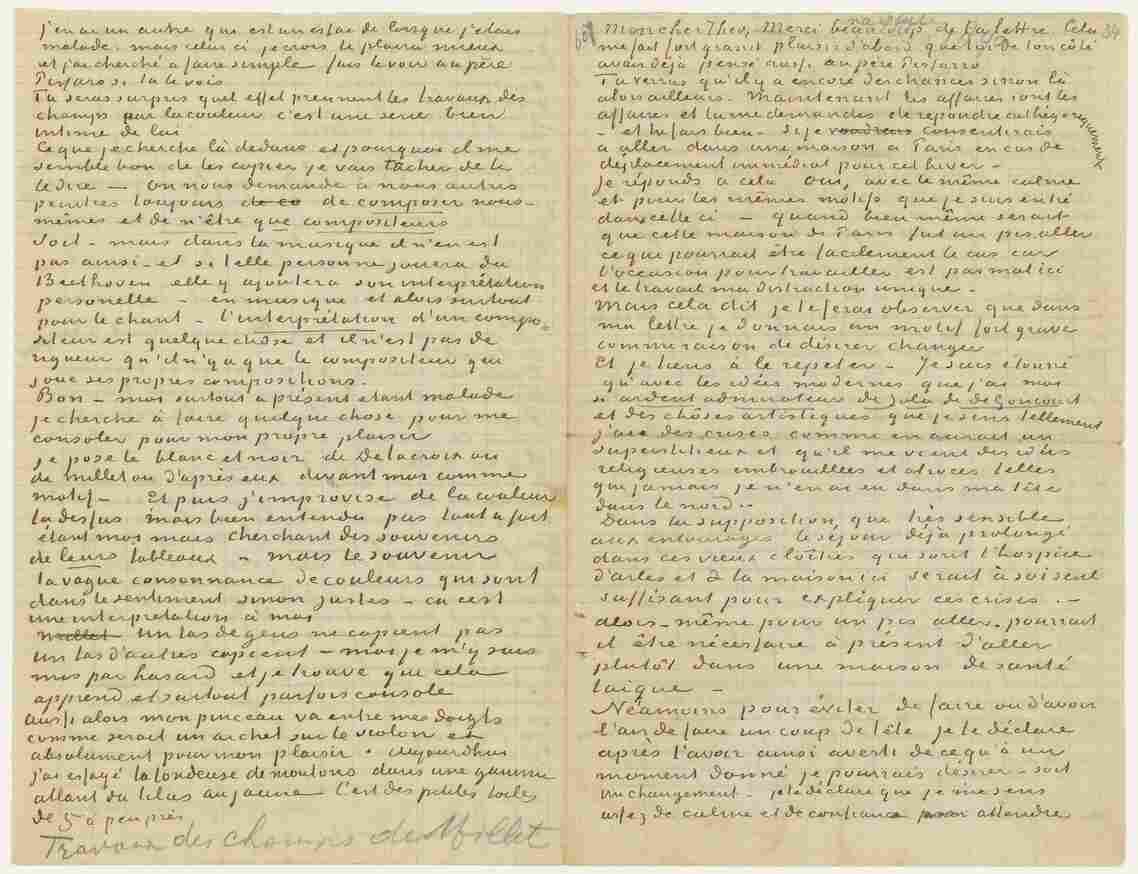 j'en ai un autre qui est un essai de lorsque j'étais
malade. mais celui ci je crois te plaira mieux
et j'ai cherché à faire simple fais le voir au père
Pissarro si tu le vois
Tu seras surpris quel effet prennent les travaux des
champs par la couleur c'est une serie bien
intime de lui
Ce que je cherche là dedans et pourquoi il me
semble bon de les copier je vais tâcher de te
le dire — on nous demande à nous autres
peintres toujours de co de composer nous-
mêmes et de n'être que compositeurs
Soit - mais dans la musique il n'en est
pas ainsi - et si telle personne jouera du
Beethoven elle y ajoutera son interprétation
personelle - en musique et alors surtout
pour le chant - l'interprétation d'un compo-
siteur est quelque chose et il n'est pas de
rigueur qu'il n'y a que le compositeur qui
joue ses propres compositions.
Bon - moi surtout à présent étant malade
je cherche à faire quelque chose pour me
consoler pour mon propre plaisir
je pose le blanc et noir de Delacroix ou
de Millet ou d'après eux devant moi comme
motif - Et puis j'improvise de la couleur
là dessus mais bien entendu pas tout à fait
étant moi mais cherchant des souvenirs
de leurs tableaux - mais le souvenir
la vague consonnance de couleurs qui sont
dans le sentiment sinon justes - ca c'est
une interprétation à moi
Millet Un tas de gens ne copient pas
un tas d'autres copient - moi je m'y suis
mis par hasard et je trouve que cela
apprend et surtout parfois console
aussi alors mon pinceau va entre mes doigts
comme serait un archet sur le violon et
absolument pour mon plaisir. aujourdhui
j'ai essayé la tondeuse de moutons dans une gamme
allant du lilas au jaune C'est des petites toiles
de 5 à peu près
Travaux des champs de Millet
607
34
Mon cher Theo, Merci beaucoup de ta lettre Cela
me fait fort grand plaisir d'abord que toi de ton côté
avais déjà pensé aussi au père Pissarro
Tu verras qu'il y a encore des chances sinon là
alors ailleurs. Maintenant les affaires sont les
affaires et tu me demandes de repondre cathegoriquement
- et tu fais bien - si je voudrais consentirais
à aller dans une maison à Paris en cas de
déplacement immédiat pour cet hiver -
Je réponds à cela oui, avec le même calme
et pour les mêmes motifs que je suis entré
dans celle ci - quand bien même serait
que cette maison de Paris fut un pis aller
ce que pourrait être facilement le cas car
l'occasion pour travailler est pas mal ici
et le travail ma distraction unique -
Mais cela dit je te ferai observer que dans
ma lettre je donnais un motif fort grave
comme raison de désirer changer
Et je tiens à le repeter - Je suis étonné
qu'avec les idées modernes que j'ai moi
si ardent admirateur de Zola de de Goncourt
et des chôses artistiques que je sens tellement
j'aie des crises comme en aurait un
superstitieux et qu'il me vient des idées
religieuses embrouillées et atroces telles
que jamais je n'en ai eu dans ma tête
dans le nord -
Dans la supposition, que très sensible
aux entourages le séjour déjà prolongé
dans ces vieux cloîtres que sont l'hospice
d'arles et à la maison ici serait à soi seul
suffisant pour expliquer ces crises. -
alors - même pour un pis aller. pourrait
il être nécéssaire à présent d'aller
plutôt dans une maison de santé
laique -
Néamoins pour éviter de faire ou d'avoir
l'air de faire un coup de tête je te déclare
après t'avoir ainsi averti de ce qu'à un
moment donné je pourrais désirer - soit
un changement - je te déclare que je me sens
assez de calme et de confiance pour attendre